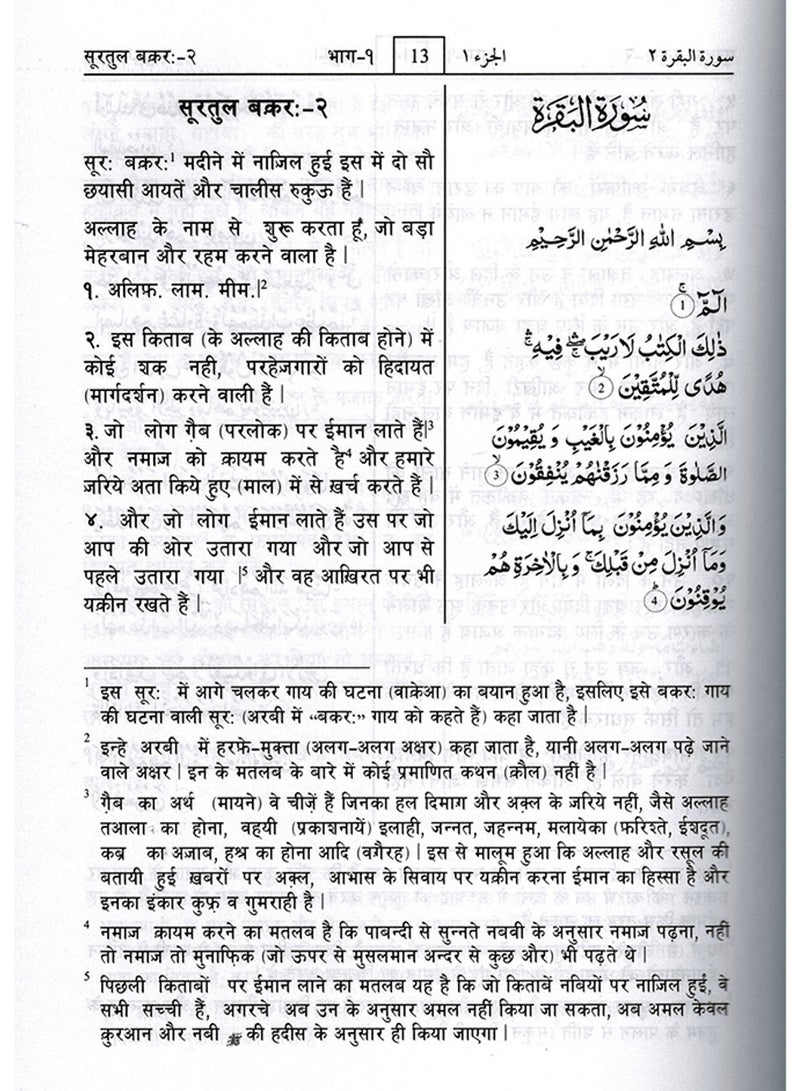 सूरतुल बक़र:-२ भाग-१ 13 الجزء ١ سورة البقرة ٢
सूरतुल बक़र:-२
सूर: बक़र:¹ मदीने में नाज़िल हुई इस में दो सौ
छयासी आयतें और चालीस रुकुऊ हैं |
अल्लाह के नाम से शुरू करता हूँ, जो बड़ा
मेहरबान और रहम करने वाला है |
१. अलिफ़. लाम. मीम.|²
२. इस किताब (के अल्लाह की किताब होने) में
कोई शक नही, परहेजगारों को हिदायत
(मार्गदर्शन) करने वाली हैं |
३. जो लोग ग़ैब (परलोक) पर ईमान लाते हैं|³
और नमाज को क़ायम करते है⁴ और हमारे
जरिये अता किये हुए (माल) में से ख़र्च करते हैं |
४. और जो लोग ईमान लाते हैं उस पर जो
आप की ओर उतारा गया और जो आप से
पहले उतारा गया |⁵ और वह आख़िरत पर भी
यक़ीन रखते हैं |
سُوْرَةُ الْبَقَرَةِ
بِسْمِ اللهِ الرَّحْمٰنِ الرَّحِيْمِ
الٓمّٓ ۚ ①
ذٰلِكَ الْكِتٰبُ لَا رَيْبَ ۛۖ فِيْهِ ۛۚ
هُدًى لِّلْمُتَّقِيْنَ ② ۙ
الَّذِيْنَ يُؤْمِنُوْنَ بِالْغَيْبِ وَ يُقِيْمُوْنَ
الصَّلٰوةَ وَ مِمَّا رَزَقْنٰهُمْ يُنْفِقُوْنَ ③ ۙ
وَالَّذِيْنَ يُؤْمِنُوْنَ بِمَآ اُنْزِلَ اِلَيْكَ
وَمَآ اُنْزِلَ مِنْ قَبْلِكَ ۚ وَ بِالْاٰخِرَةِ هُمْ
يُوْقِنُوْنَ ④
¹ इस सूर: में आगे चलकर गाय की घटना (वाक़ेआ) का बयान हुआ है, इसलिए इसे बकर: गाय
की घटना वाली सूर: (अरबी में "बकर:" गाय को कहते हैं) कहा जाता है |
² इन्हे अरबी में हरफ़े-मुक्ता (अलग-अलग अक्षर) कहा जाता है, यानी अलग-अलग पढ़े जाने
वाले अक्षर | इन के मतलब के बारे में कोई प्रमाणित कथन (क़ौल) नहीं है |
³ ग़ैब का अर्थ (मायने) वे चीज़ें हैं जिनका हल दिमाग़ और अक़्ल के जरिये नहीं, जैसे अल्लाह
तआला का होना, वहयी (प्रकाशनायें) इलाही, जन्नत, जहन्नम, मलायेका (फ़रिश्ते, ईशदूत),
कब्र का अजाब, हश्र का होना आदि (वग़ैरह) | इस से मालूम हुआ कि अल्लाह और रसूल की
बतायी हुई ख़बरों पर अक़्ल, आभास के सिवाय पर यक़ीन करना ईमान का हिस्सा है और
इनका इंकार कुफ़्र व गुमराही है |
⁴ नमाज क़ायम करने का मतलब है कि पाबन्दी से सुन्नते नबवी के अनुसार नमाज पढ़ना, नहीं
तो नमाज तो मुनाफ़िक़ (जो ऊपर से मुसलमान अन्दर से कुछ और) भी पढ़ते थे |
⁵ पिछली किताबों पर ईमान लाने का मतलब यह है कि जो किताबें नबियों पर नाज़िल हुई, वे
सभी सच्ची हैं, अगरचे अब उन के अनुसार अमल नहीं किया जा सकता, अब अमल केवल
क़ुरआन और नबी ﷺ की हदीस के अनुसार ही किया जाएगा |